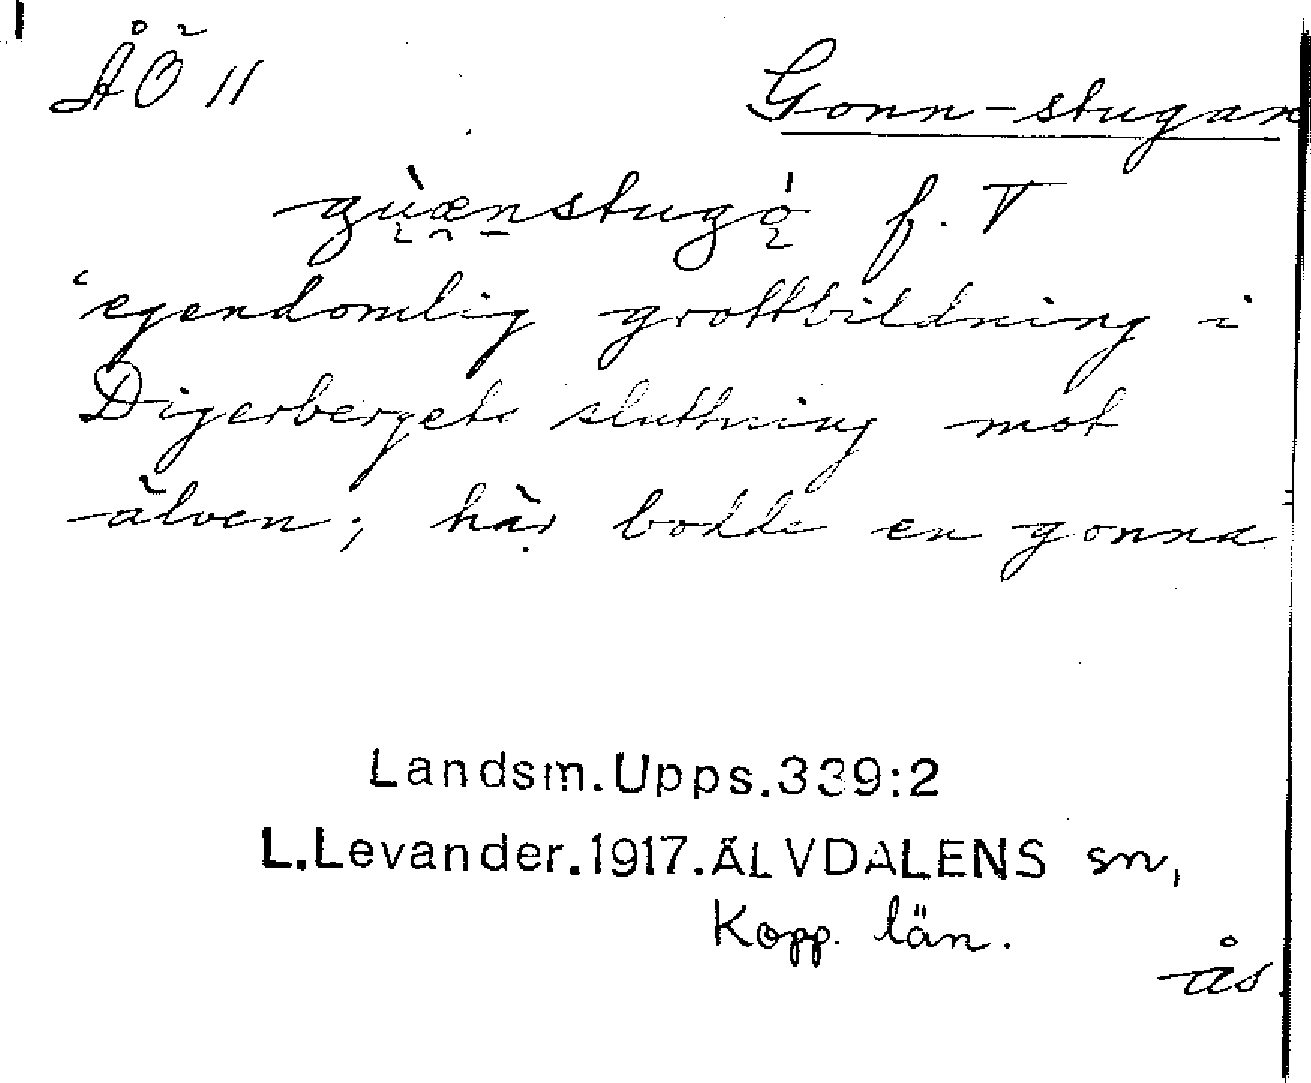 ÅÖ 11
Gonn-stugan
gu̢̇̀æ̯n̠stugǫ́ f. V
‛egendomlig grottbildning i
Digerbergets sluttning mot
älven; här bodde en gonna
Landsm.Upps.339:2
L.Levander.1917.ÄLVDALENS sn,
Kopp. län.
ås.